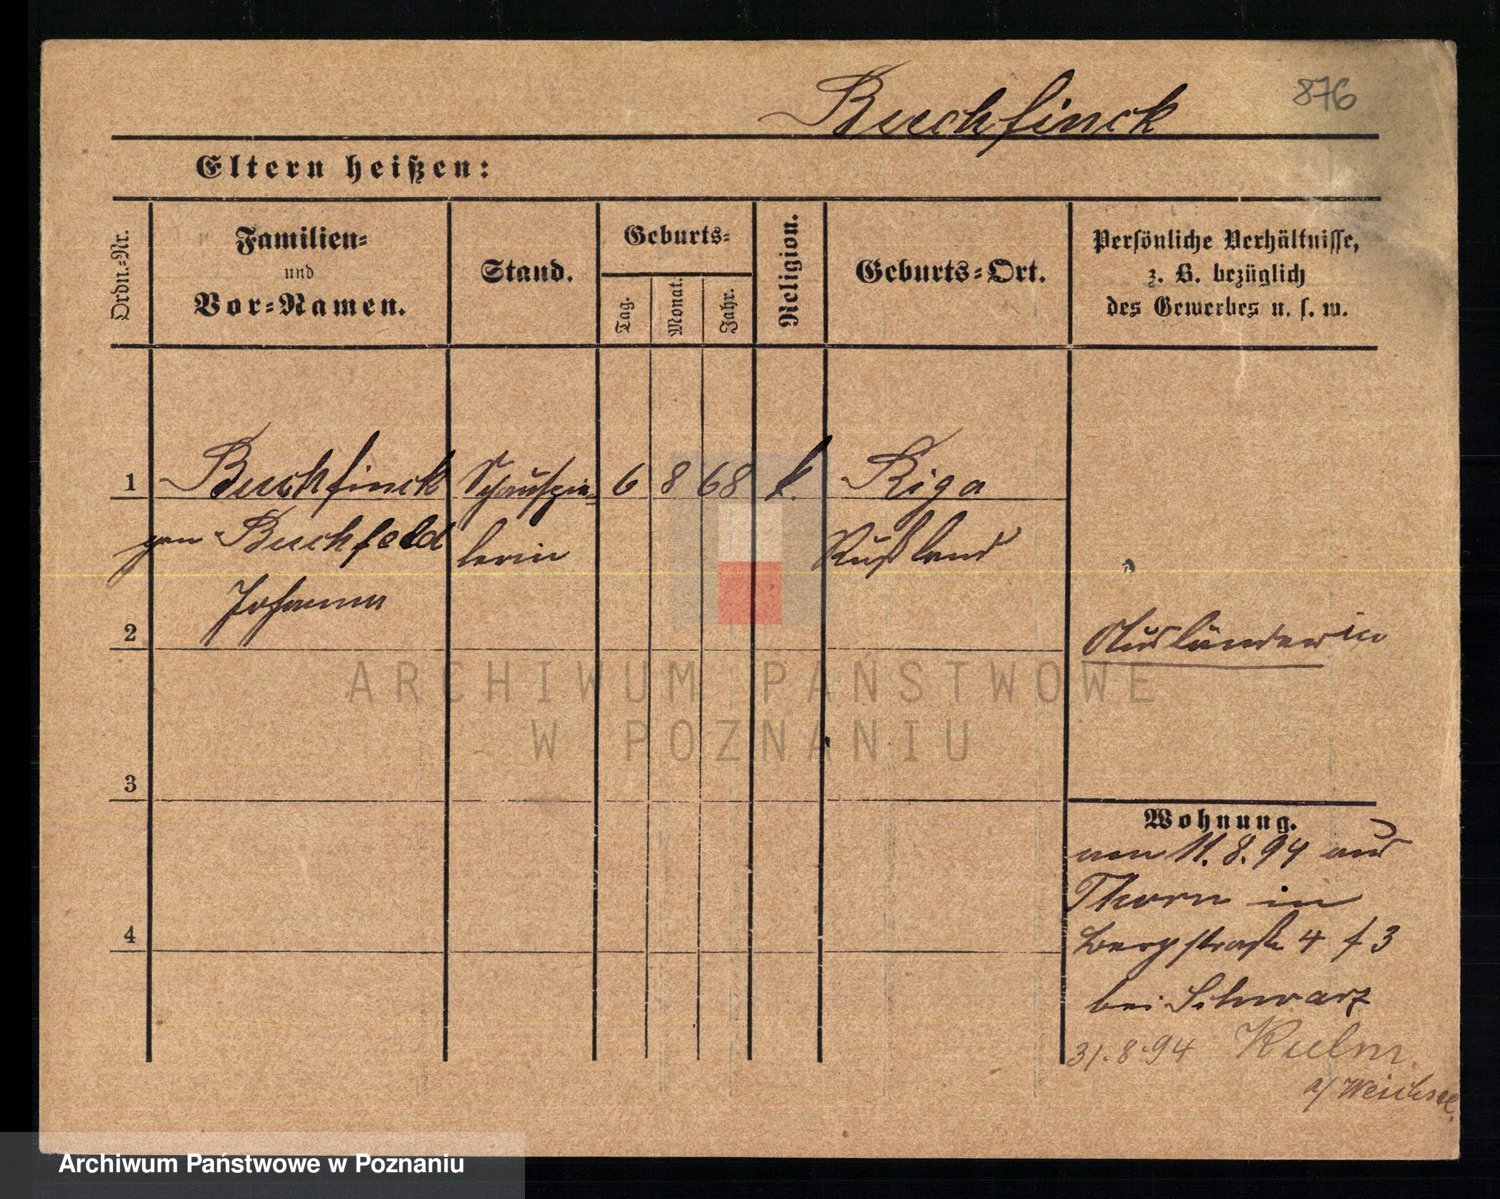 Buchfinck
876
Eltern heißen:
Ordn.-Nr.
Familien-
und
Vor-Namen.
Stand.
Geburts-
Tag.
Monat.
Jahr.
Religion.
Geburts-Ort.
Persönliche Verhältnisse,
z. B. bezüglich
des Gewerbes u. s. w.
1 Buchfinck Schauspie- 6 8 68 k. Riga
gen Buchfeld lerin Rußland
Johanna
2
Ausländerin
ARCHIWUM PAŃSTWOWE
W POZNANIU
3
Wohnung.
am 11.8.94 aus
Thorn in
Bergstraße 4 f 3
4
bei Schwarz
31.8.94 Kulm
a/Weichsel.
Archiwum Państwowe w Poznaniu